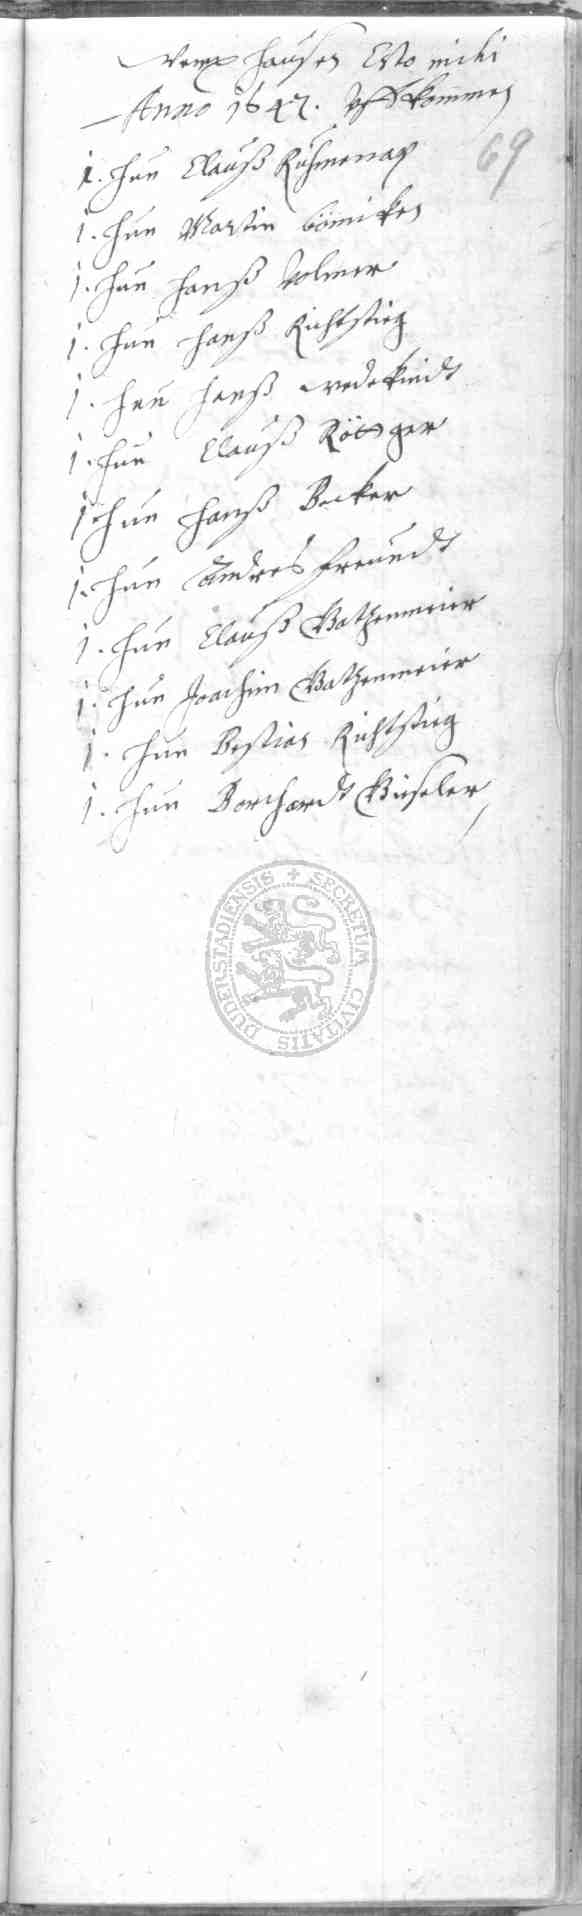 hausen Esto michi
Anno 1647. Uff kommen
69
1. hun Clauß Rühmenap
1. hun Martin bömiken
1. hun hanß Volmer
1. hun hanß Richtstieg
1. hun hanß wedekindt
1. hun Clauß Röttger
1 hun hanß Becker
1. hun Andres freuendt
1. hun Clauß Watzenmeier
1. hun Joachim Watzenmeier
1. hun Bestian Richtstieg
1. hun Borchardt Wüseler
SECRETUM CIVITATIS DUDERSTADIENSIS